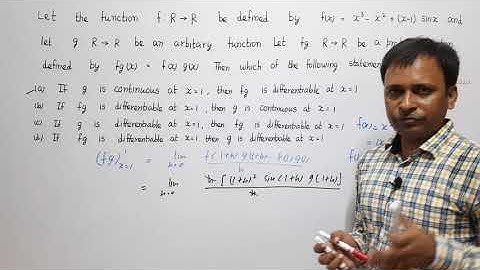 Let the function f: R→R be defined by f(x) = x³ - x² + (x-1) sinx and
let g R→R be an arbitary function Let fg R→R be a pro
defined by fg(x) = f(x) g(x) Then which of the following statemen
(a) If g is continuous at x=1, then fg is differentiable at x=1
(b) If fg is differentiable at x=1, then g is continuous at x=1
(c) If g is differentiable at x=1, then fg is differentiable at x=1
(d) If fg is differentiable at x=1 then g is differentiable at x=1
(fg)'x=1 = lim h→0
= lim h→0 h[(1+h)² + sin(1+h) g(1+h)] / h